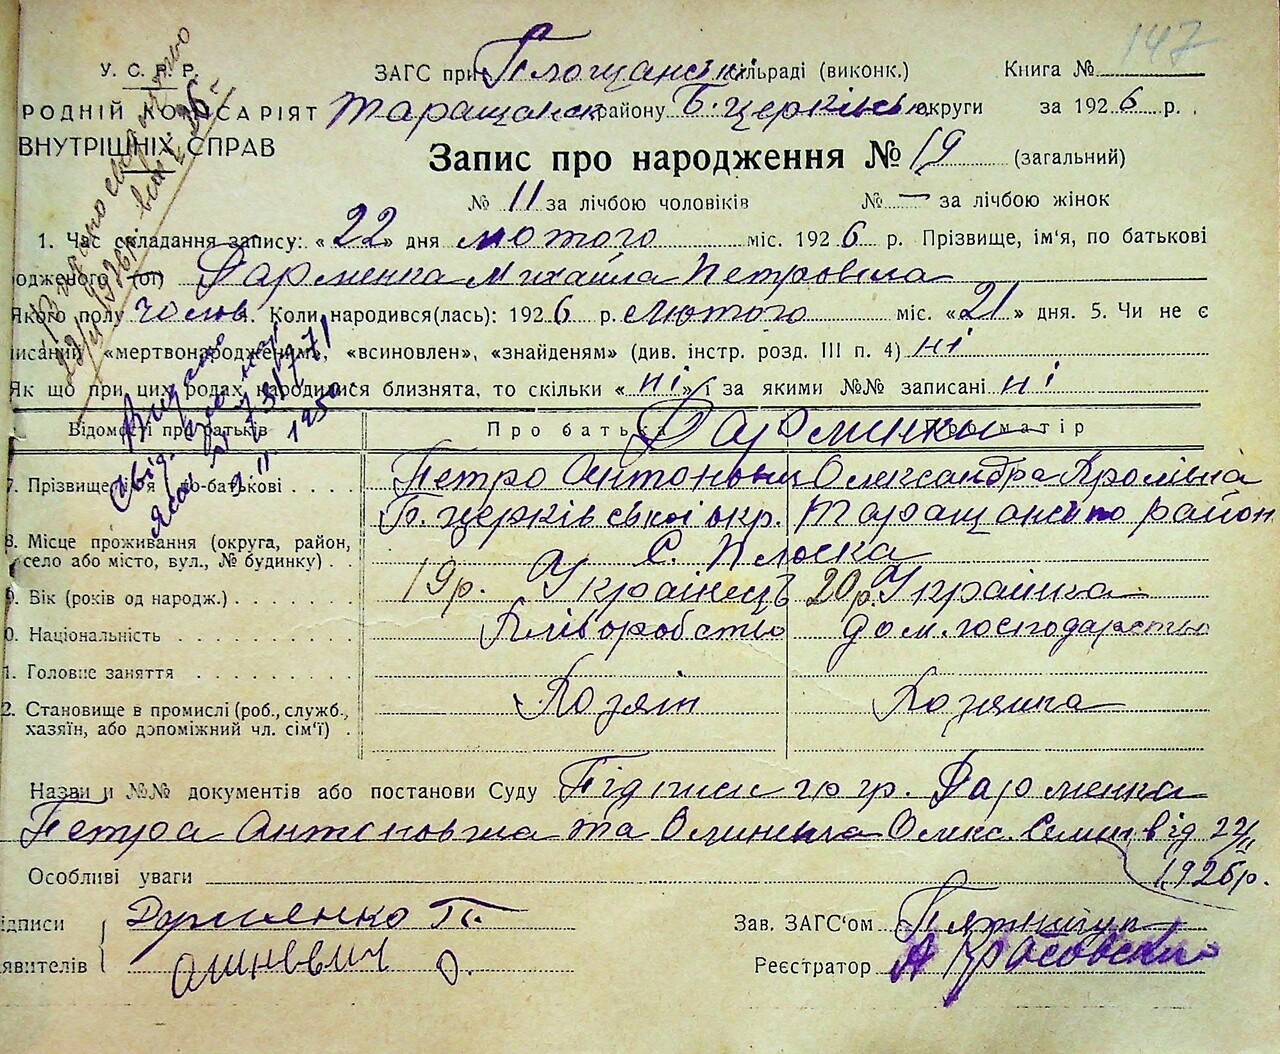 147
У. С. Р. Р.
ЗАГС при Площанській сільраді (виконк.) Книга №
РОДНІЙ КОМІСАРІЯТ Таращанськ району Б. Церківськ округи за 1926 р.
ВНУТРІШНІХ СПРАВ
Запис про народження № 19 (загальний)
№ 11 за лічбою чоловіків № — за лічбою жінок
1. Час складання запису: «22» дня лютого міс. 1926 р. Прізвище, ім'я, по батькові
родженого (ої) Дарменка Михайла Петровича
Якого полу чолов. 4. Коли народився(лась): 1926 р. лютого міс. «21» дня. 5. Чи не є
писаний «мертвонародженям», «всиновлен», «знайденям» (див. інстр. розд. III п. 4) ні
Як що при цих родах народилися близнята, то скільки «ні» і за якими №№ записані ні
Видано
1950
Відомості про батьків Про батька Про матір
Дарминки
7. Прізвище, ім'я по-батькові Петро Антонович Олександра
Б. церківської окр. Таращанського район
8. Місце проживання (округа, район, село або місто, вул., № будинку) с. Плоска
9. Вік (років од народж.) 19р. Українець 20р. Українка
0. Національність Хліборобство дом. господарство
1. Головне заняття
2. Становище в промислі (роб., служб., Хазяін Хазяйка
хазяїн, або допоміжний чл. сім'ї)
Назви и №№ документів або постанови Суду Підписи гр. гр. Дарменка
Петра Антоновича та Олекс. від 22/II
1926р.
Особливі уваги
ідписи Дарменко П. Зав. ЗАГС'ом
явителів О. Реєстратор А Красовский